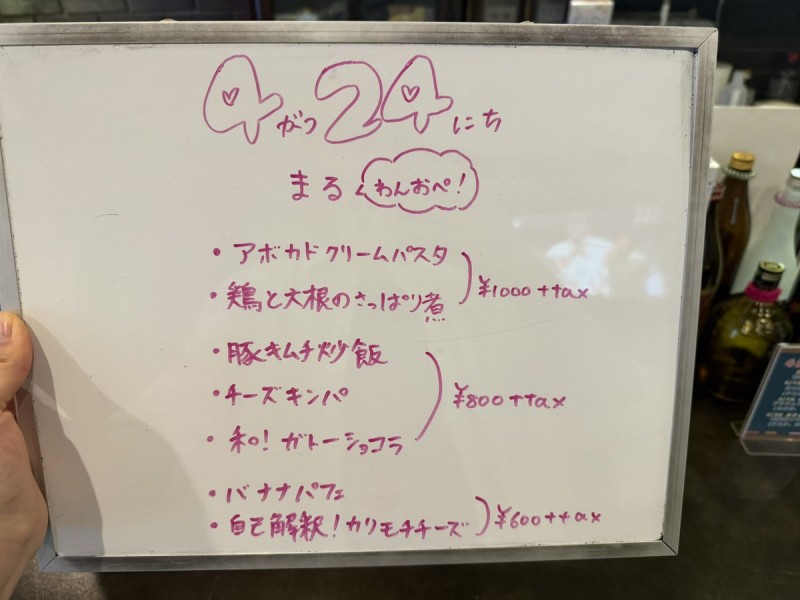 4がつ24にち
まる わんおぺ!
・アボカドクリームパスタ
・鶏と大根のさっぱり煮
¥1000++ax
・豚キムチ炒飯
・チーズキンパ
・和!ガトーショコラ
¥800++ax
・バナナパフェ
・自己解釈!カリモチチーズ
¥600++ax